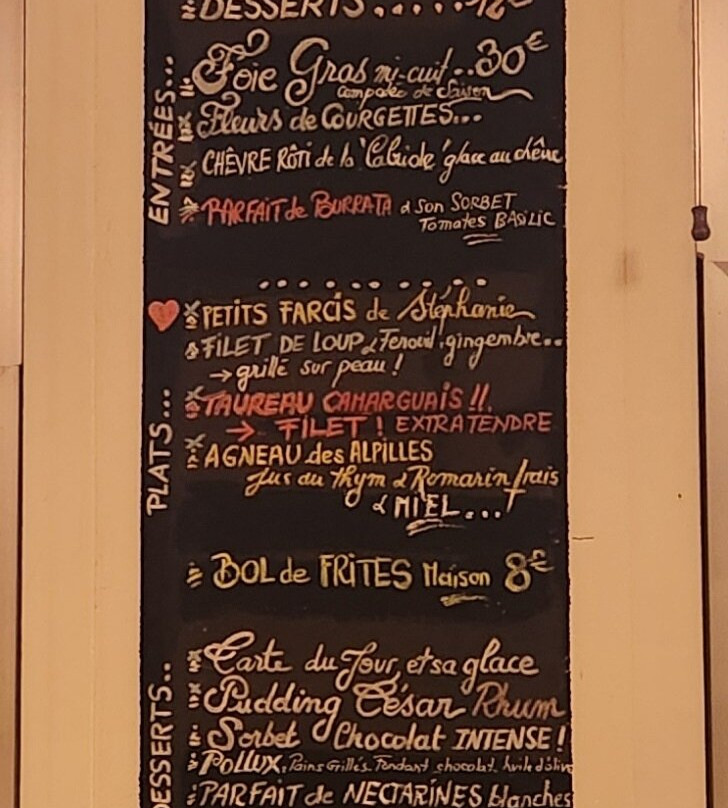 DESSERTS.....12€
ENTRÉES...
Foie Gras mi-cuit..30€
compotée de saison
Fleurs de COURGETTES...
CHÈVRE RÔTI de la glace au chêne
PARFAIT de BURRATA & Son SORBET
Tomates BASILIC
PLATS...
PETITS FARCIS de Stéphanie
FILET DE LOUP & Fenouil, gingembre..
→ grillé sur peau !
TAUREAU CAMARGUAIS !!
→ FILET ! EXTRA TENDRE
AGNEAU des ALPILLES
Jus au thym & Romarin frais
& MIEL...
BOL de FRITES Maison 8€
DESSERTS..
Tarte du Jour, et sa glace
Pudding César Rhum
Sorbet Chocolat INTENSE !
POLLUX, Pains Grillés. Fondant chocolat. huile d'olive
PARFAIT de NECTARINES blanches